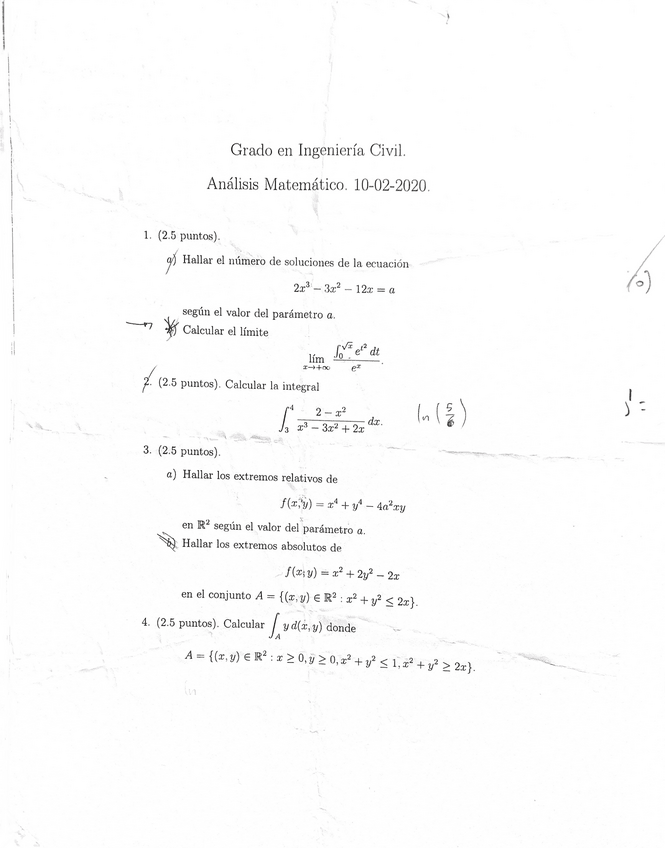 Grado en Ingeniería Civil.
Análisis Matemático. 10-02-2020.
1. (2.5 puntos).
a) Hallar el número de soluciones de la ecuación
2x³ − 3x² − 12x = a
según el valor del parámetro a.
b) Calcular el límite
lím_{x→+∞} \frac{∫_0^{√x} e^{t²} dt}{e^x}.
2. (2.5 puntos). Calcular la integral
∫_3^4 \frac{2 − x²}{x³ − 3x² + 2x} dx. ln(5/6)
3. (2.5 puntos).
a) Hallar los extremos relativos de
f(x, y) = x⁴ + y⁴ − 4a²xy
en ℝ² según el valor del parámetro a.
b) Hallar los extremos absolutos de
f(x, y) = x² + 2y² − 2x
en el conjunto A = {(x, y) ∈ ℝ² : x² + y² ≤ 2x}.
4. (2.5 puntos). Calcular ∫_A y d(x, y) donde
A = {(x, y) ∈ ℝ² : x ≥ 0, y ≥ 0, x² + y² ≤ 1, x² + y² ≥ 2x}.